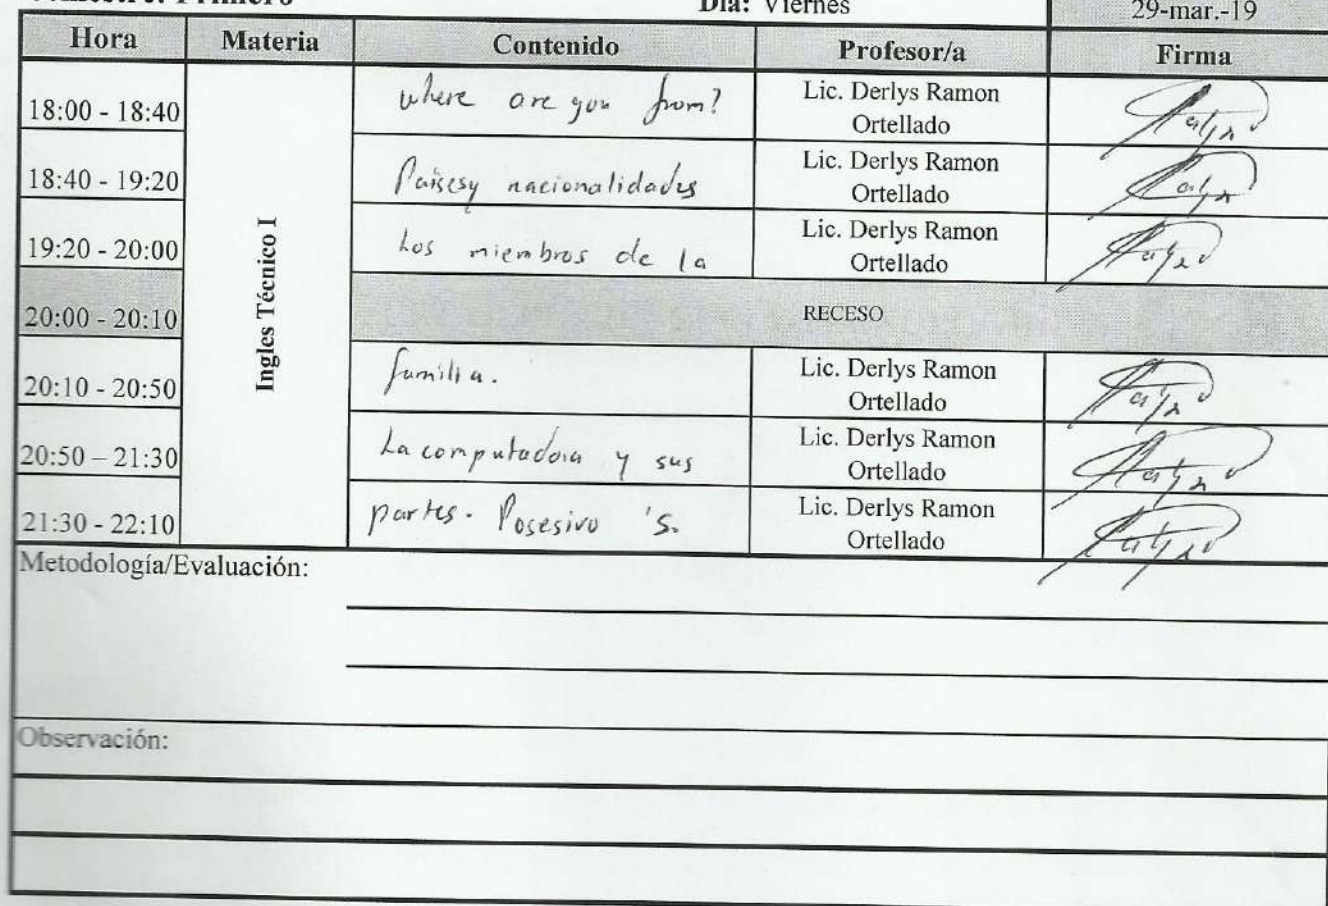 Semestre: Primero
Día: Viernes
29-mar.-19
Hora Materia Contenido Profesor/a Firma
18:00 - 18:40 where are you from? Lic. Derlys Ramon
Ortellado
18:40 - 19:20 Paises y nacionalidades Lic. Derlys Ramon
Ortellado
19:20 - 20:00 Los miembros de la Lic. Derlys Ramon
Ortellado
Ingles Técnico I
20:00 - 20:10 RECESO
20:10 - 20:50 familia. Lic. Derlys Ramon
Ortellado
20:50 – 21:30 La computadora y sus Lic. Derlys Ramon
Ortellado
21:30 - 22:10 partes. Posesivo 's. Lic. Derlys Ramon
Ortellado
Metodología/Evaluación:
Observación: